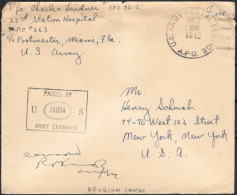 Pfc Charles Lindner
23rd Station Hospital
A.P.O. #663
c/o Postmaster, Miami, Fla.
U.S. Army
U.S. ARMY
A.P.O.
PASSED BY
U S
ARMY EXAMINER
Mr.
Henry Schwab
14-76 West 103 Street
New York, New York
U. S. A.
BELGIUM CONGO